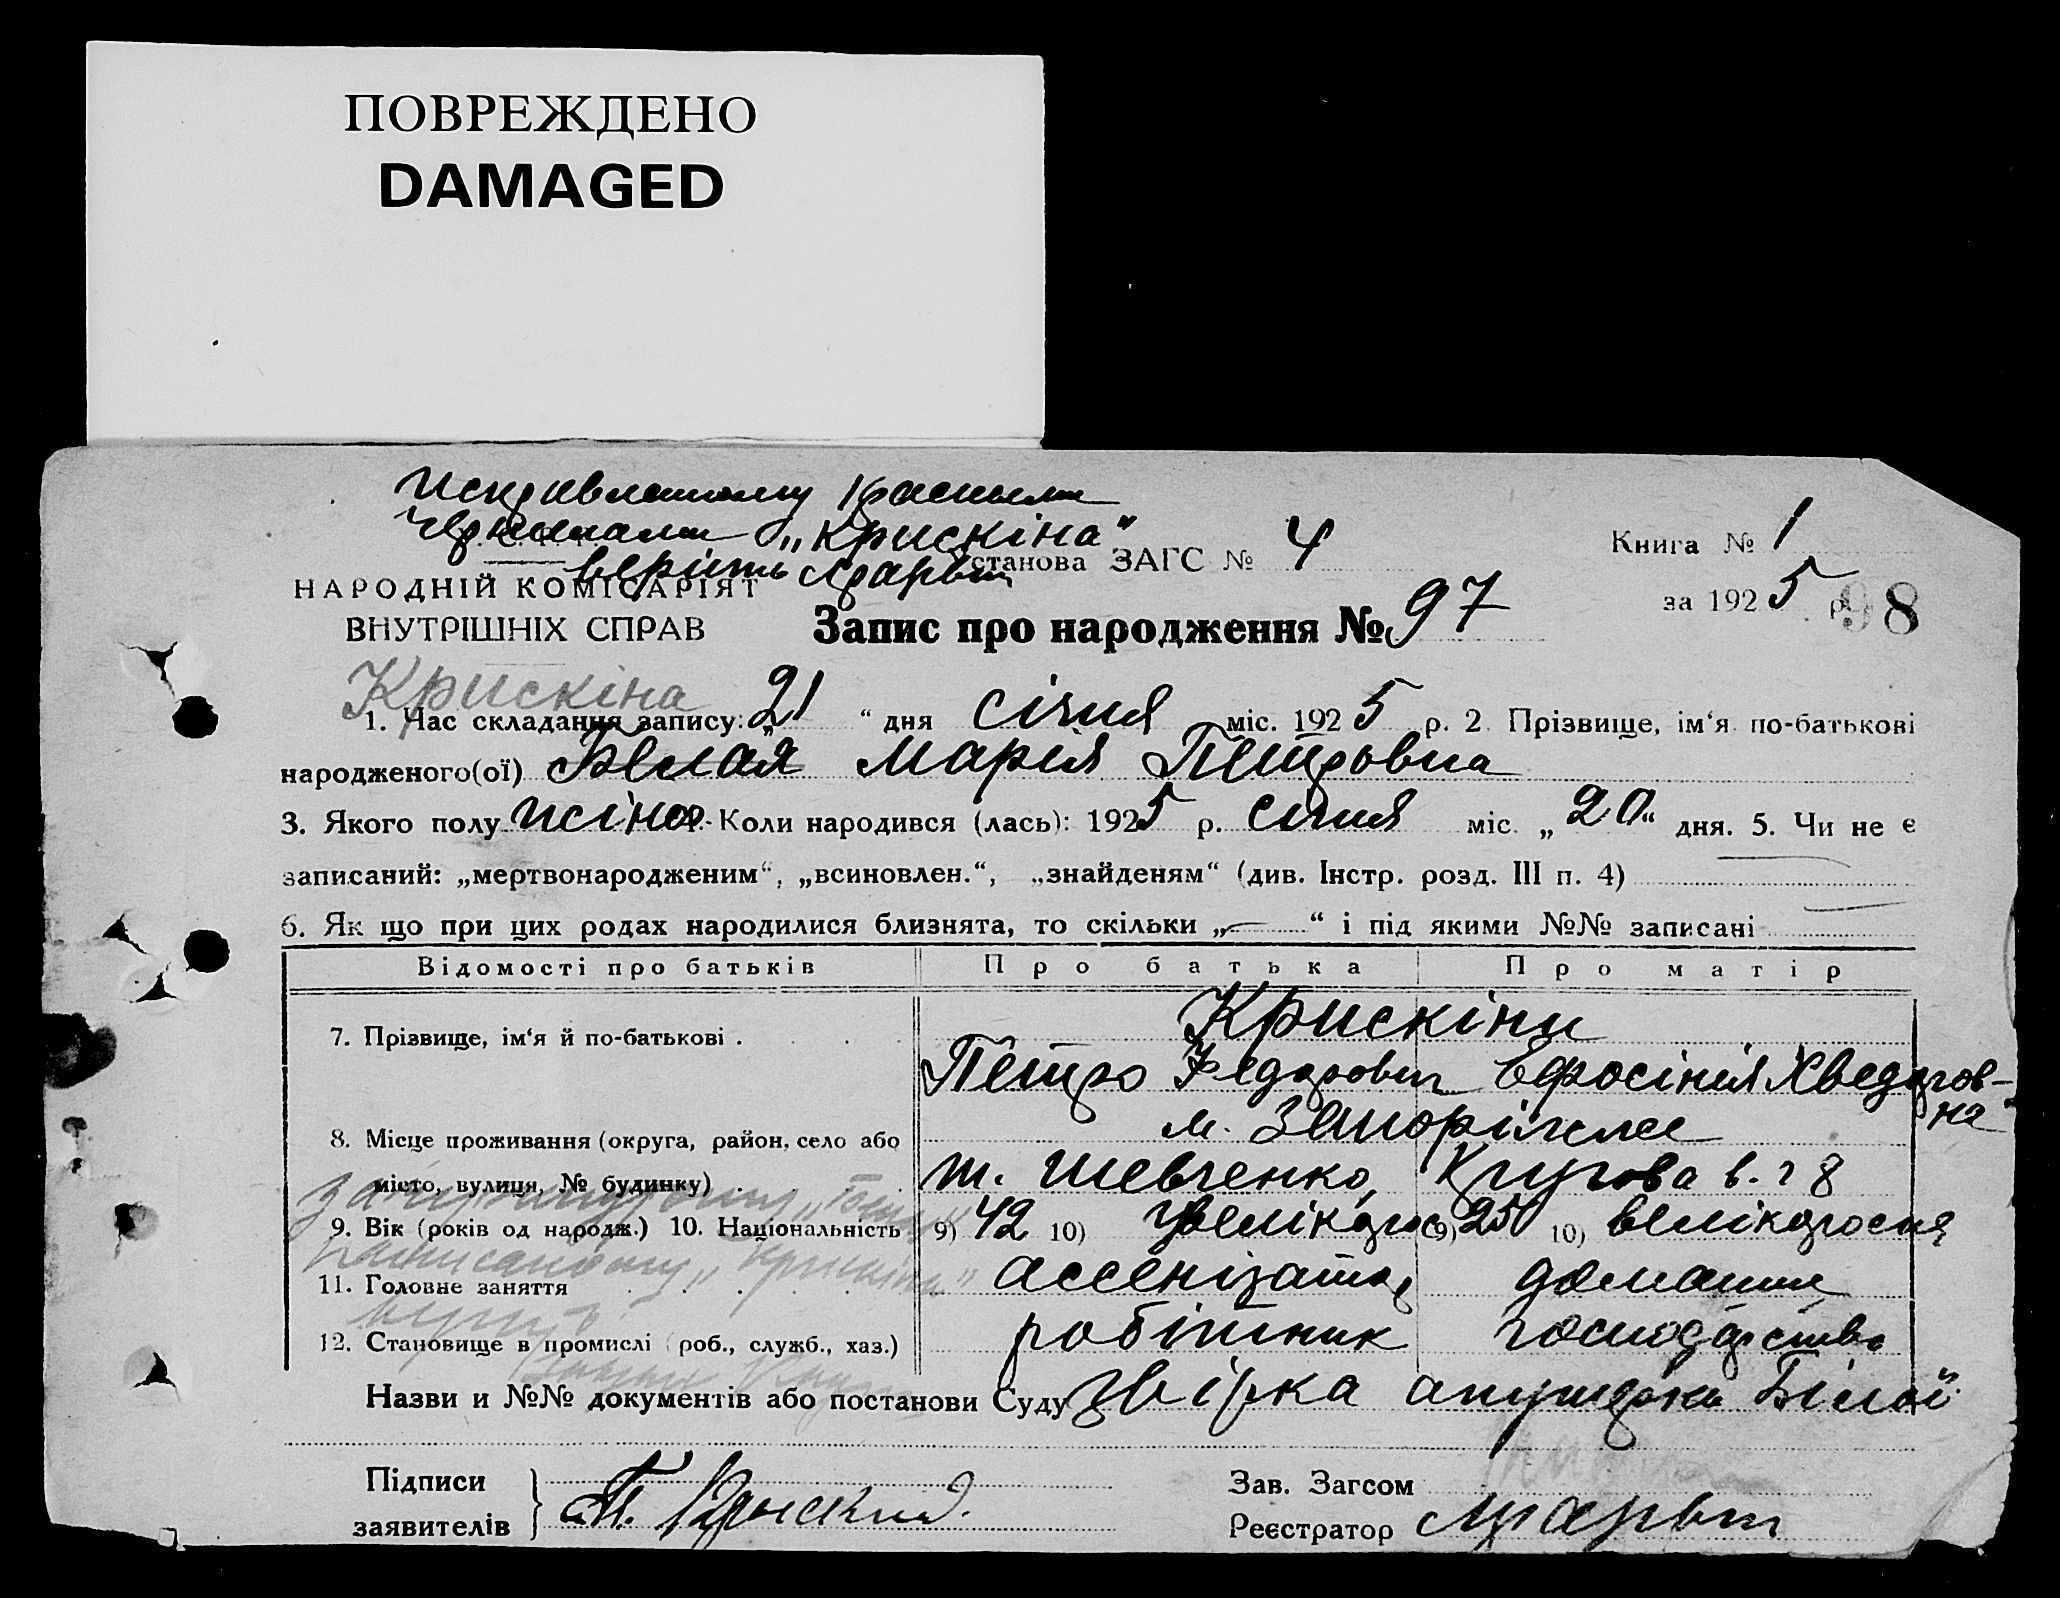 ПОВРЕЖДЕНО
DAMAGED
Исправленному красными
чернилами „Крискіна“
верить
Установа ЗАГС № 4
Книга № 1
НАРОДНІЙ КОМІСАРІЯТ
ВНУТРІШНІХ СПРАВ
за 1925 р.
98
Запис про народження № 97
Крискіна
1. Час складання запису: „21“ дня січня міс. 1925 р. 2. Прізвище, ім‘я по-батькові
народженого(ої) Белая Марія Петровна
3. Якого полу жіноч. 4. Коли народився (лась): 1925 р. січня міс. „20“ дня. 5. Чи не є
записаний: „мертвонародженим“, „всиновлен.“, „знайденям“ (див. Інстр. розд. III п. 4)
6. Як що при цих родах народилися близнята, то скільки „—“ і під якими №№ записані
Відомості про батьків Про батька Про матір
Крискіни
7. Прізвище, ім‘я й по-батькові .
Петро Федорович Ефросінія Хведоров-
на
м. Запоріжжя
8. Місце проживання (округа, район, село або
місто, вулиця, № будинку) .
т. Шевченко, Кругова в. г 8
9. Вік (років од народж.) 10. Національність 9) 42 10) великорос 9) 25 10) великороска
написаному „Крискіна“
верить
11. Головне заняття ассенізатор домашнє
12. Становище в промислі (роб., служб., хаз.) робітник господарство
Назви и №№ документів або постанови Суду Звірка акушерки Білої
Підписи
заявителів } П. Крыскин
Зав. Загсом
Реєстратор